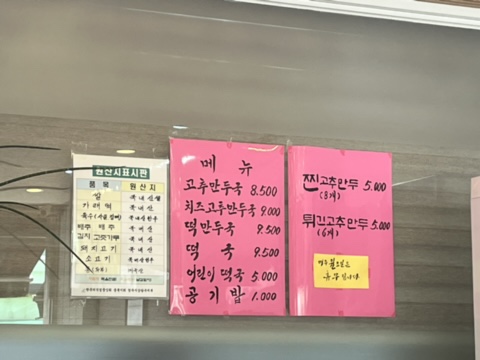 원산지표시판
품목 원산지
쌀 국내산
가래떡 국내산
육수(사골,잡뼈) 국내산한우
배추 국내산
김치 고춧가루 국내산
돼지고기 국내산
소고기 국내산한우
메뉴
고추만두국 8.500
치즈고추만두국 9.000
떡만두국 9.500
떡국 9.500
어린이 떡국 5.000
공기밥 1.000
찐고추만두 5.000
(8개)
튀긴고추만두 5.000
(6개)
매주 월요일은